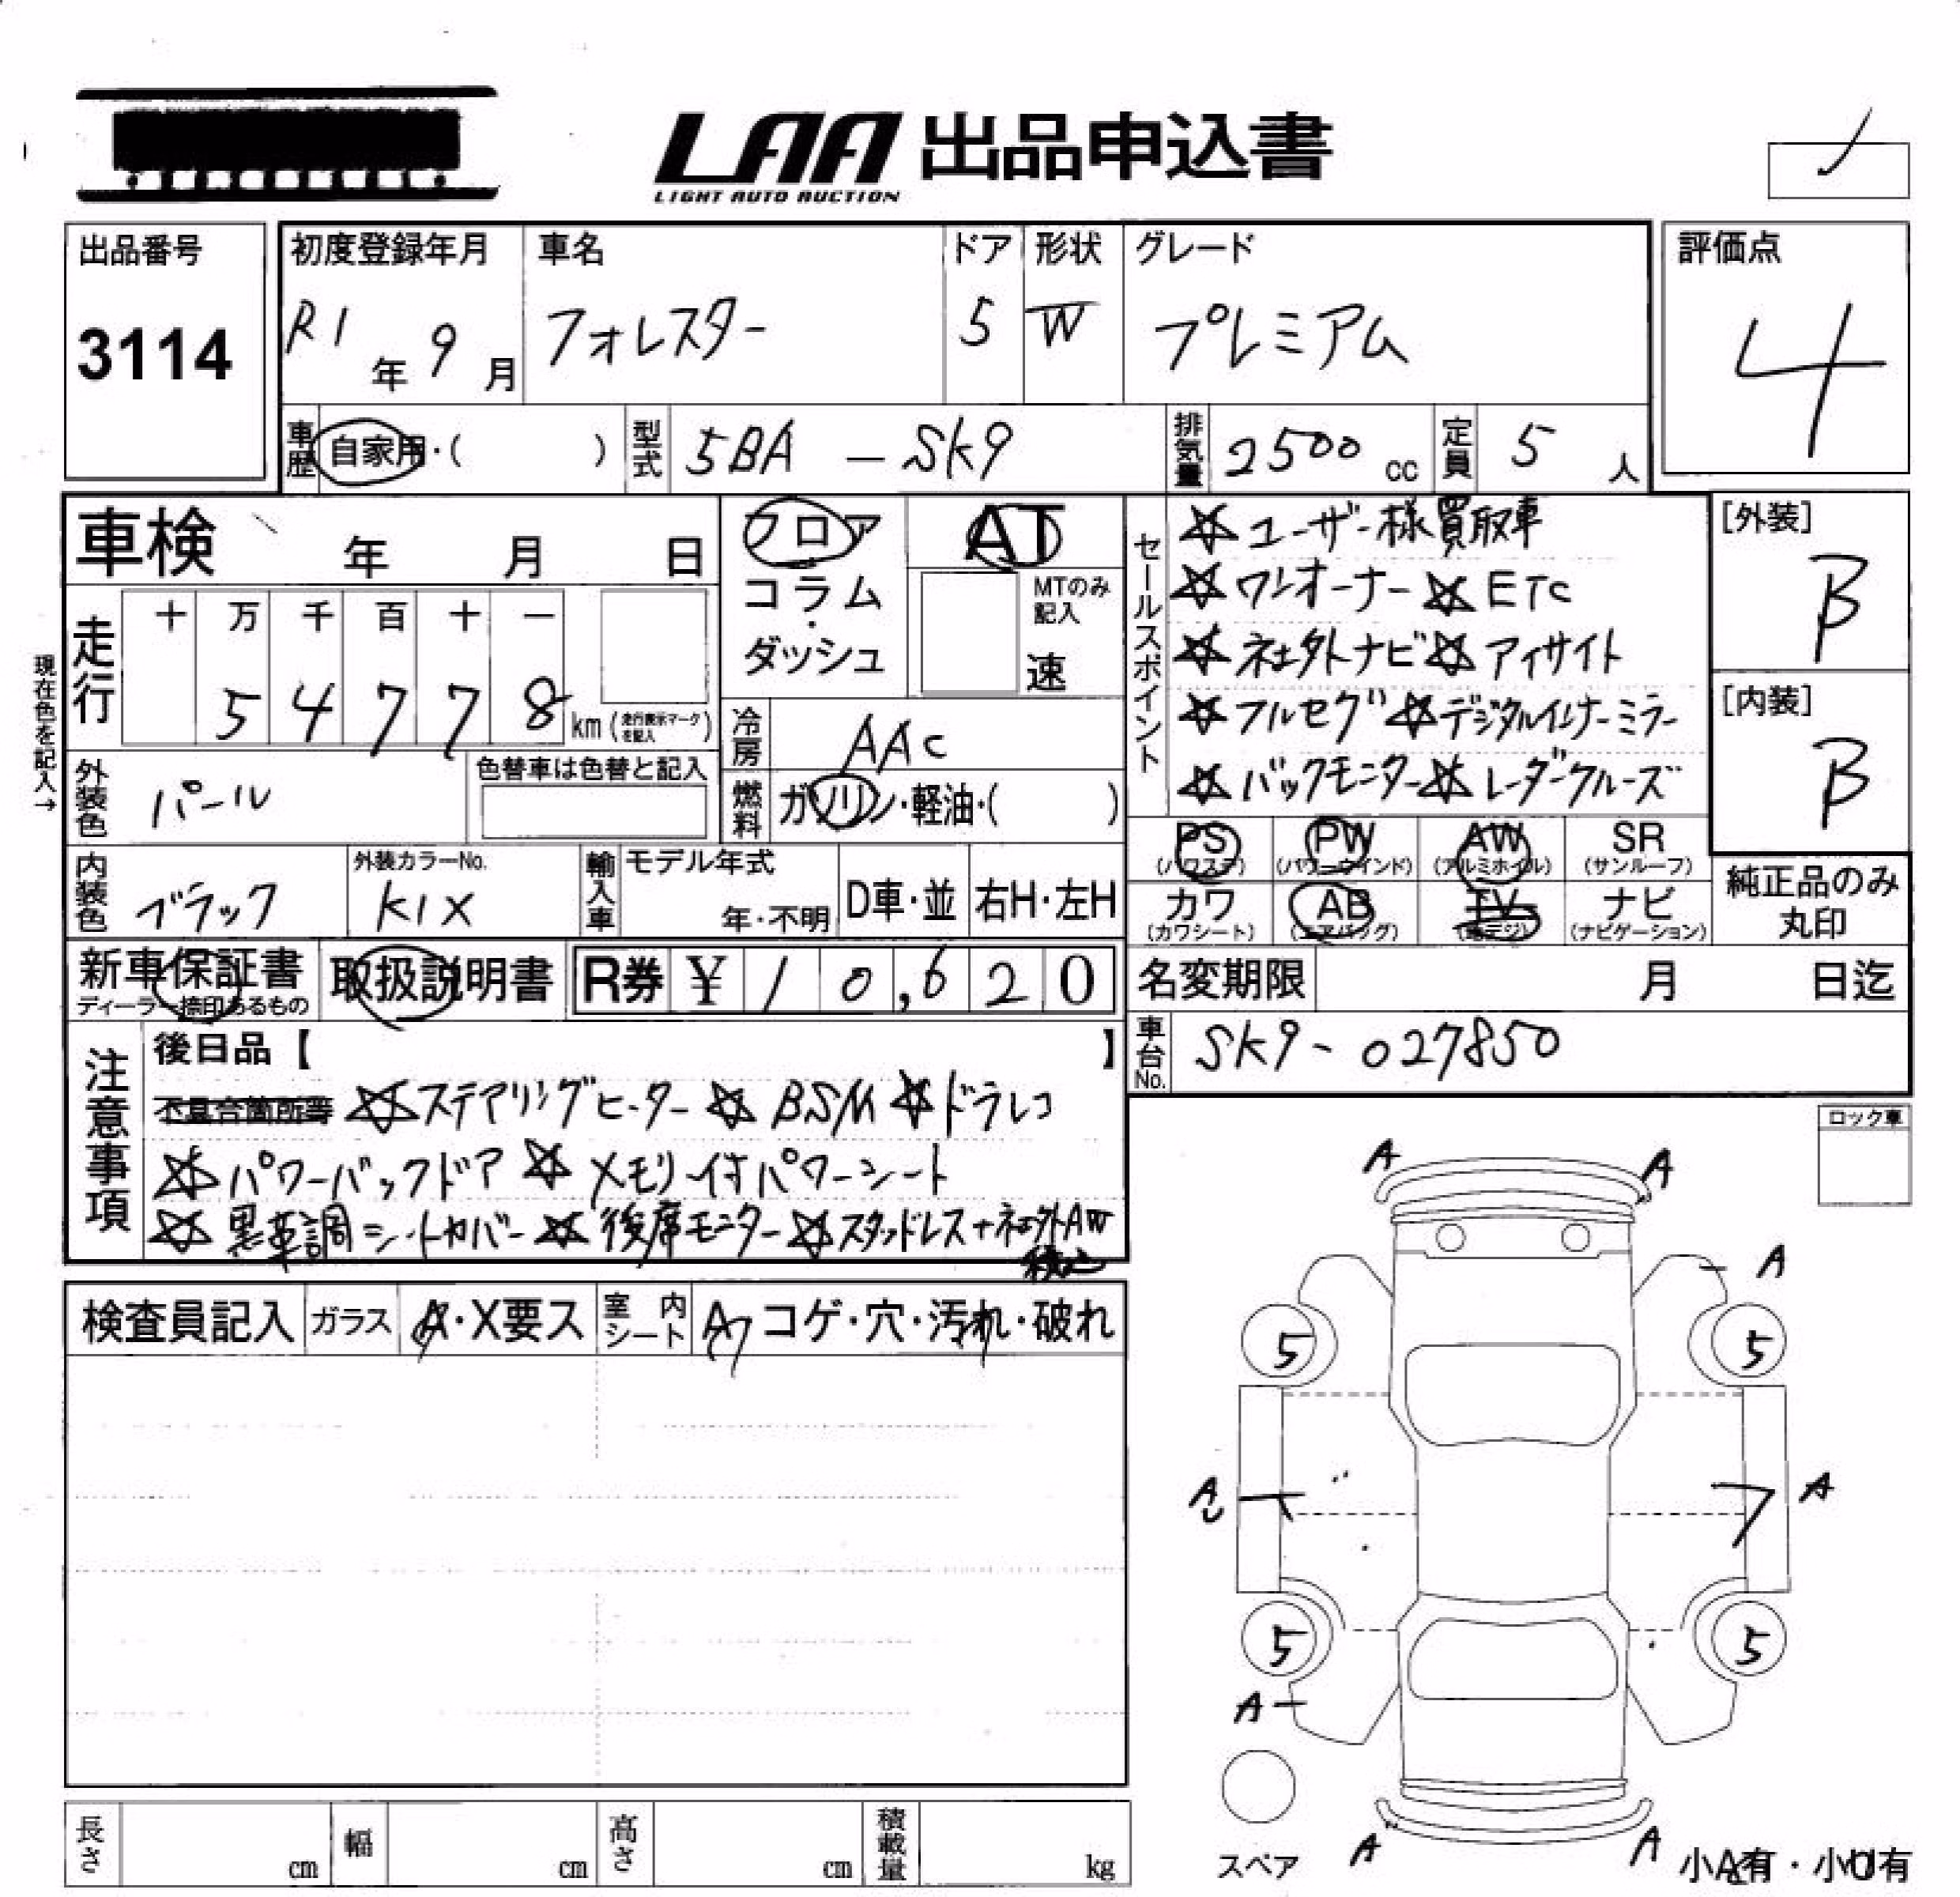 LAA 出品申込書
LIGHT AUTO AUCTION
出品番号
3114
初度登録年月
R1年 9月
車名
フォレスター
ドア
5
形状
W
グレード
プレミアム
評価点
4
車歴 自家用・( )
型式 5BA - SK9
排気量 2500 cc
定員 5 人
車検 年 月 日
走行
十 万 千 百 十 一
5 4 7 7 8 km (走行表示マークを記入)
現在色を記入→
外装色 パール
色替車は色替と記入
内装色 ブラック
外装カラーNo.
K1X
輸入車
モデル年式
年・不明
D車・並
右H・左H
フロア
コラム・
ダッシュ
AT
MTのみ記入
速
冷房 AAC
燃料 ガソリン・軽油・( )
セールスポイント
☆ユーザー様買取車
☆ワンオーナー ☆ETC
☆社外ナビ ☆アイサイト
☆フルセグ ☆デジタルインナーミラー
☆バックモニター ☆レーダークルーズ
[外装]
B
[内装]
B
PS (パワステ)
PW (パワーウインド)
AW (アルミホイル)
SR (サンルーフ)
カワ (カワシート)
AB (エアバッグ)
TV (地デジ)
ナビ (ナビゲーション)
純正品のみ
丸印
新車保証書
ディーラー捺印あるもの
取扱説明書
R券 ¥ 10,620
名変期限 月 日迄
車台No. SK9-027850
注意事項
後日品【 】
不具合箇所等 ☆ステアリングヒーター ☆BSM ☆ドラレコ
☆パワーバックドア ☆メモリー付パワーシート
☆黒革調シートカバー ☆後席モニター ☆スタッドレス+社外AW
積込
検査員記入
ガラス A・X要ス
室内シート A コゲ・穴・汚れ・破れ
ロック車
A A
A
5 5
A A
5 5
A
A A
スペア
小A有・小U有
長さ cm
幅 cm
高さ cm
積載量 kg